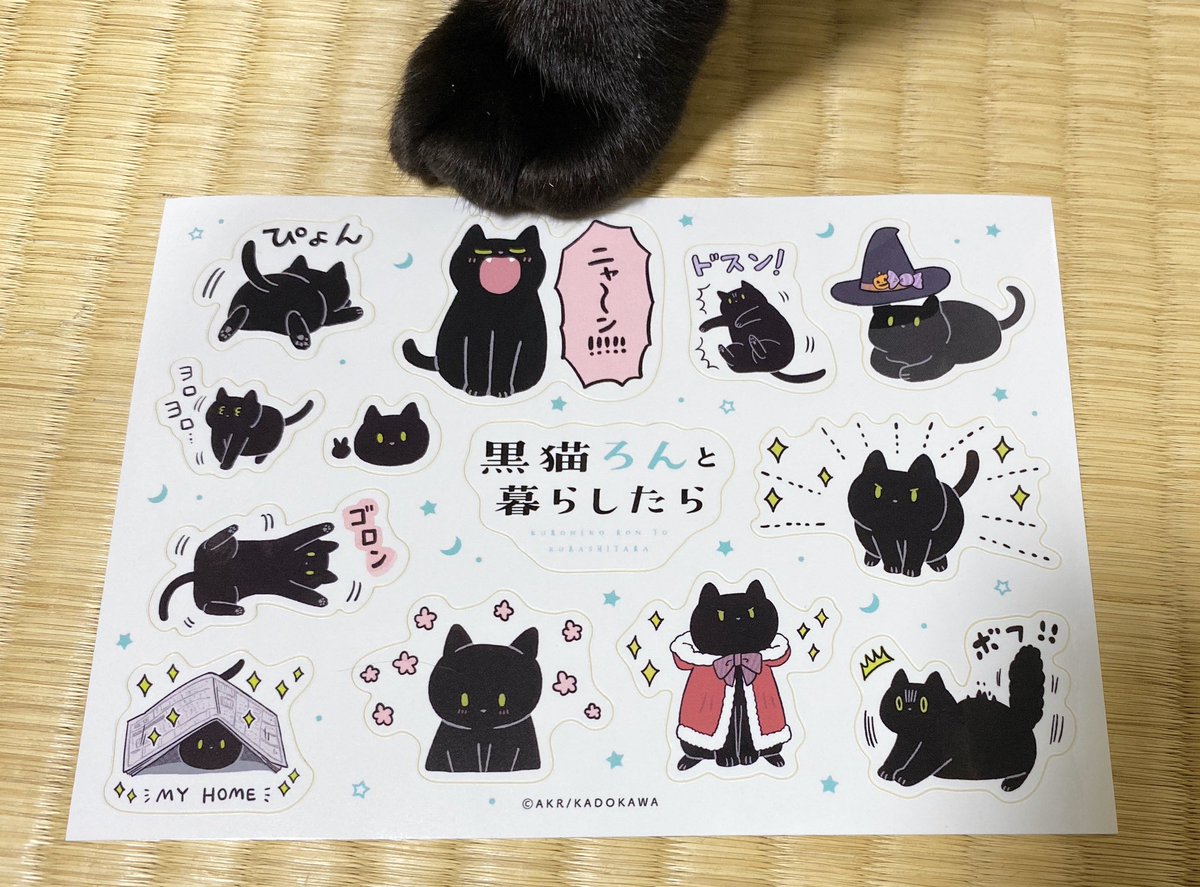 ぴょん
ニャ〜ン!!!!!
ドスン!
ヨロ
ヨロ…
黒猫ろんと
暮らしたら
KURONEKO RON TO
KURASHITARA
ゴロン
ボフ!!
MY HOME
©AKR/KADOKAWA